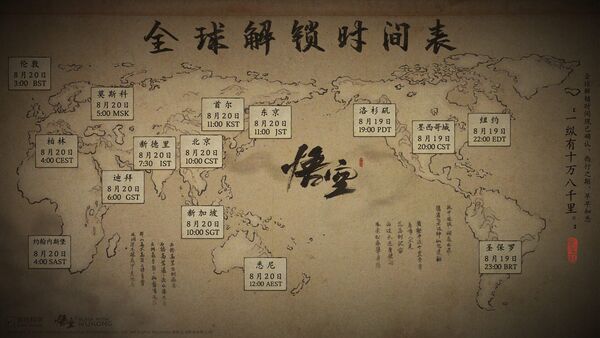 全球解锁时间表
伦敦
8月20日
3:00 BST
莫斯科
8月20日
5:00 MSK
首尔
8月20日
11:00 KST
东京
8月20日
11:00 JST
洛杉矶
8月19日
19:00 PDT
墨西哥城
8月19日
20:00 CST
纽约
8月19日
22:00 EDT
柏林
8月20日
4:00 CEST
新德里
8月20日
7:30 IST
北京
8月20日
10:00 CST
迪拜
8月20日
6:00 GST
悟空
新加坡
8月20日
10:00 SGT
约翰内斯堡
8月20日
4:00 SAST
悉尼
8月20日
12:00 AEST
圣保罗
8月19日
23:00 BRT
一纵有十万八千里
悟空
BLACK MYTH
WUKONG